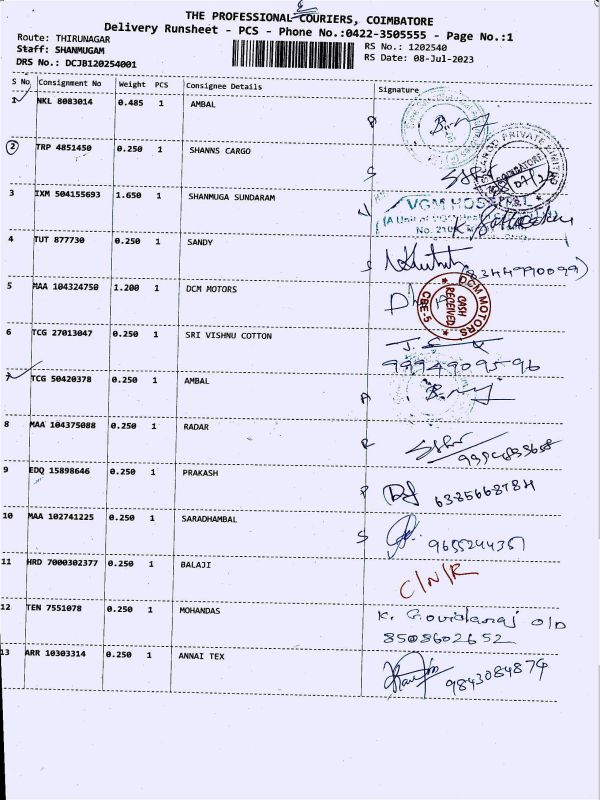 THE PROFESSIONAL COURIERS, COIMBATORE
Delivery Runsheet - PCS - Phone No.:0422-3505555 - Page No.:1
Route: THIRUNAGAR RS No.: 1202540
Staff: SHANMUGAM RS Date: 08-Jul-2023
DRS No.: DCJB120254001
S No Consignment No Weight PCS Consignee Details Signature
1 NKL 8083014 0.485 1 AMBAL
2 TRP 4851450 0.250 1 SHANNS CARGO
3 IXM 504155693 1.650 1 SHANMUGA SUNDARAM
VGM HOSPITAL
4 TUT 877730 0.250 1 SANDY
(8344990099)
5 MAA 104324750 1.200 1 DCM MOTORS
DCM MOTORS CASH RECEIVED CBE-5
6 TCG 27013047 0.250 1 SRI VISHNU COTTON
7 TCG 50420378 0.250 1 AMBAL
8 MAA 104375088 0.250 1 RADAR
9 EDQ 15898646 0.250 1 PRAKASH
10 MAA 102741225 0.250 1 SARADHAMBAL
9655244351
11 HRD 7000302377 0.250 1 BALAJI
C/N/R
12 TEN 7551078 0.250 1 MOHANDAS
8508602652
13 ARR 10303314 0.250 1 ANNAI TEX
9843084874